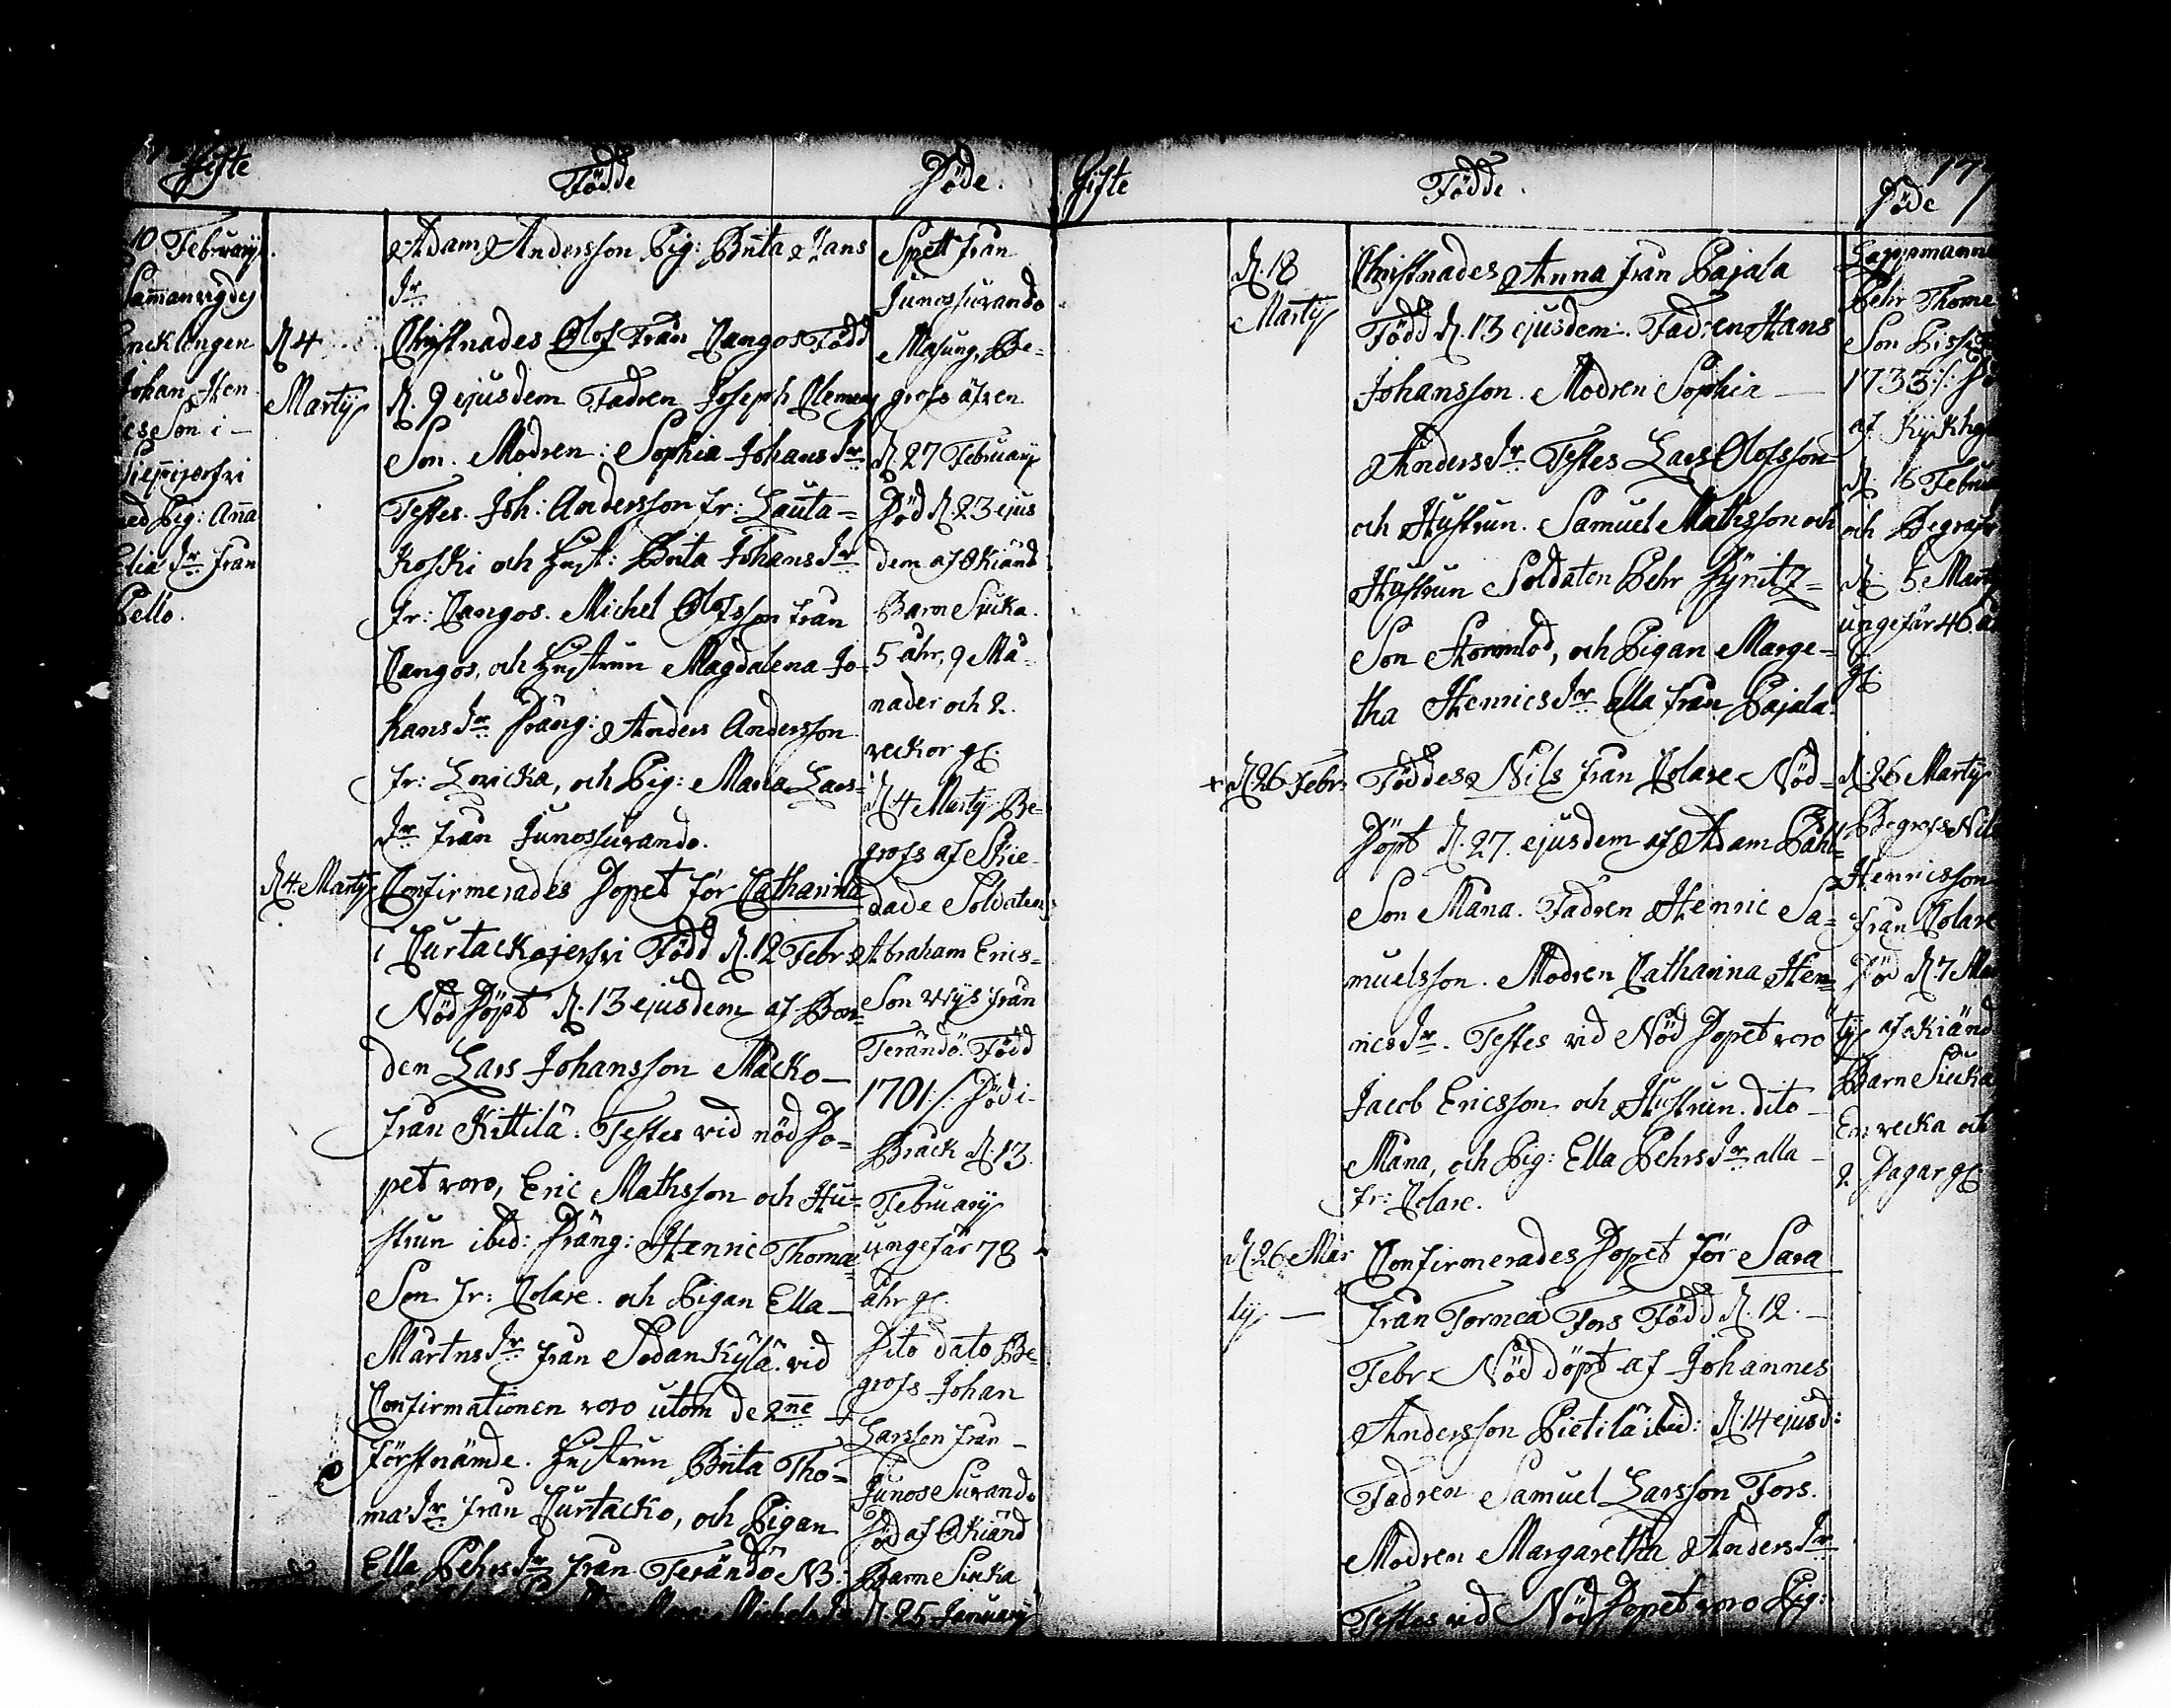 Gifte
Födde
Döde.
10 Februarij
Sammanvigdes
Encklingen
Johan Hen
es Son i
Sieppijerfvi
med Pig: Anna
Elia Dr från
Pello.
D. 4
Martij
D. 4. Martij
Adam Andersson Pig: Brita Hans
Dr.
Christnades Olof Från Cangos Född
D. 9 ejusdem Fadren Joseph Clemens
Son. Modren: Sophia Johans Dr
Testes. Joh: Andersson fr: Lauta=
koski och Hust: Brita Johans Dr
fr: Cangos. Michel Olofsson från
Cangos, och Hustrun Magdalena Jo-
hans Dr Dräng: Anders Andersson
fr: Lovicka, och Pig: Maria Lars
Dr från Junossuando.
Confirmerades Dopet för Catharina
i Curtackojerfvi Född D. 12 Febr.
Nöd Döpt D. 13 ejusdem af Bon-
den Lars Johansson Macko
från Kittilä. Testes vid nöd Do=
pet voro, Eric Mathsson och Hu=
strun ibed: Dräng: Henric Thomæ
Son fr: Colare. och Pigan Ella
Martns Dr från Sodankylä. vid
Confirmationen voro utom de 2ne
förstnämde. Hustrun Brita Tho=
mæ Dr från Curtacko, och Pigan
Ella Pehrs Dr från Terändö NB:
Spett från
Junossuando
Masung, Be=
grofs äfven
D. 27 Februarij
Död D. 23 ejus
dem af Okiänd
Barn Siuka.
5 åhr, 9 Må-
nader och 2.
veckor gl.
D. 4 Martij Be-
grofs afSkie-
dade Soldaten
Abraham Erics=
Son Wijs från
Terändö. Född
1701 /: Död i
Bråck D. 13.
Februarij
ungefär 78
åhr gl.
Dito dato Be=
grofs Johan
Larsson från
Junos Suando
Död af Okiänd
Barn Siuka
D. 25 Januarij
Gifte
Födde.
Döde
D. 18
Martij
D. 26 Febr.
D. 26 Mar
tij
Christnades Anna från Pajala
Född D. 13 ejusdem. Fadren Hans
Johansson. Modren Sophia
Anders Dr. Testes Lars Olofsson
och Hustrun. Samuel Mathsson och
Hustrun Soldaten Pehr
Son och Pigan Marge=
tha Henrics Dr alla från Pajala.
Föddes Nils från Colare Nöd=
Döpt D. 27. ejusdem af Adam Påhl=
Son Mana. Fadren Henric Sa=
muelsson. Modren Catharina Hen=
rics Dr. Testes vid Nöd Dopet voro
Jacob Ericsson och Hustrun. dito
Mana, och Pig: Ella Pehrs Dr. alla
fr: Colare.
Confirmerades Dopet för Sara
från Torneå Fors Född D. 12.
Febr. Nöd döpt af Johannes
Andersson Pietilä ibid: D. 14 ejusd:
Fadren Samuel Larsson Fors.
Modren Margaretha Anders Dr
Testes vid Nöd Dopet voro Pig:
Lappmannen
Pehr Thome
Son
1733 /:
af
D. 16 Februa
och Begrafv
D. 5 Martij
ungefär 46. åh
gl.
D. 26 Martij
Begrofs Nils
Henricsson
från Colare
Död D. 7 Mar
tij af okiänd
Barn Siuka
En vecka och
2 Dagar gl